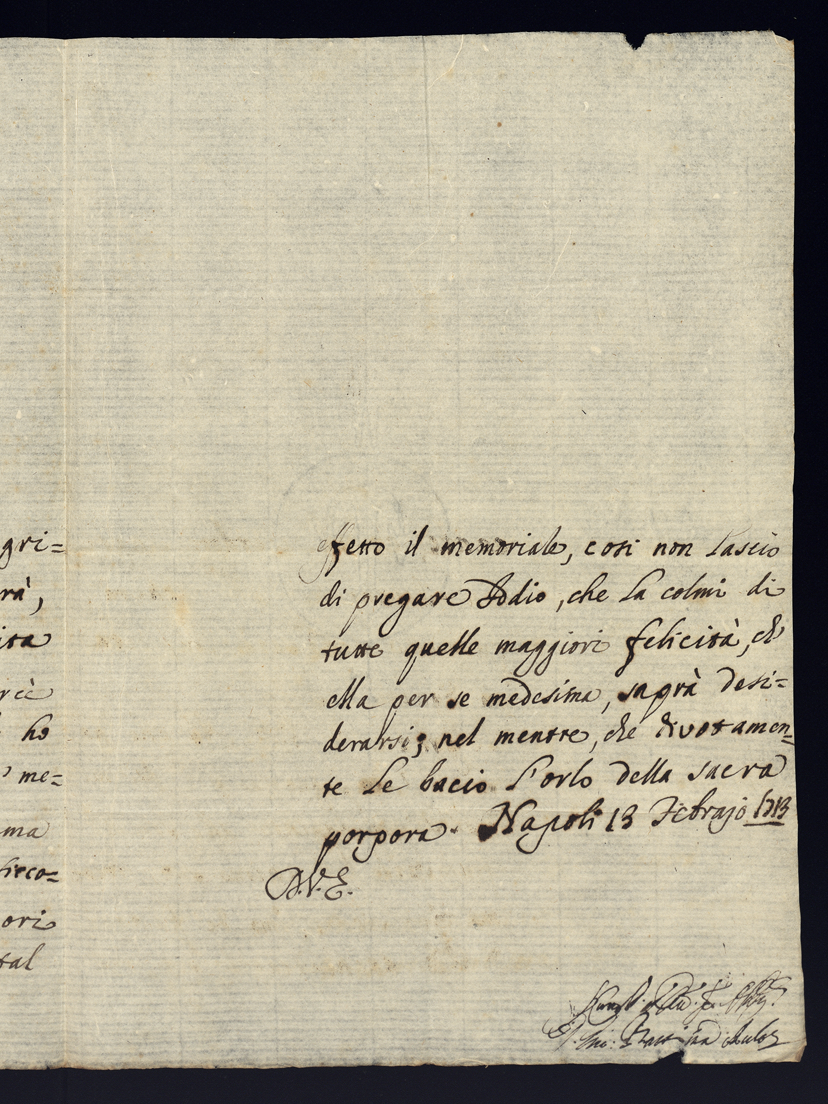 gri=
rà,
ita
rcè
ho
me=
ma
fico=
ori
tal
effetto il memoriale, così non Lascio
di pregare Iddio, che La colmi di
tutte quelle maggiori felicità, ch'
ella per se medesima, saprà desi=
derarsi; nel mentre, che divotamen=
te Le bacio l'orlo della sacra
porpora. Napoli 13 Febrajo 1713
D.V.E.